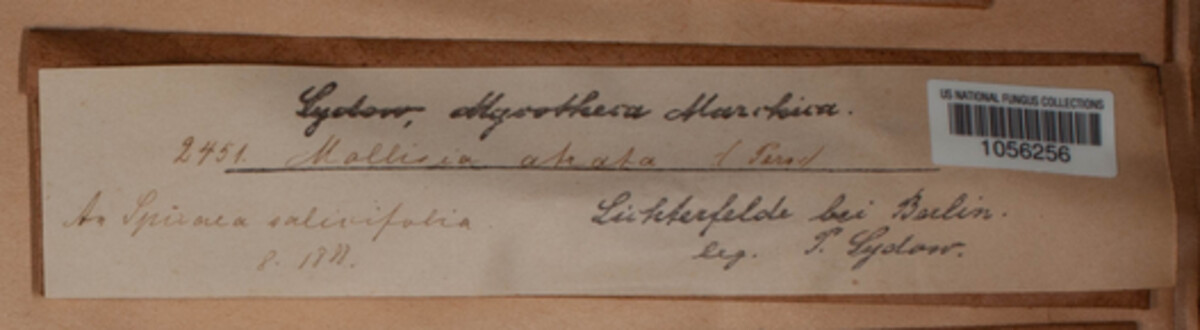 Sydow, Mycotheca Marchica.
US NATIONAL FUNGUS COLLECTIONS
1056256
2451. Mollisia atrata (Pers)
An Spiraea salicifolia
Lichterfelde bei Berlin.
8. 1888.
leg. P. Sydow.